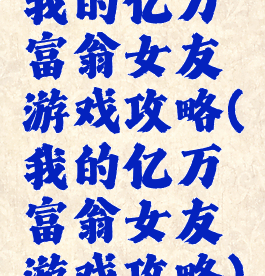 我的亿万
富翁女友
游戏攻略(
我的亿万
富翁女友
游戏攻略)